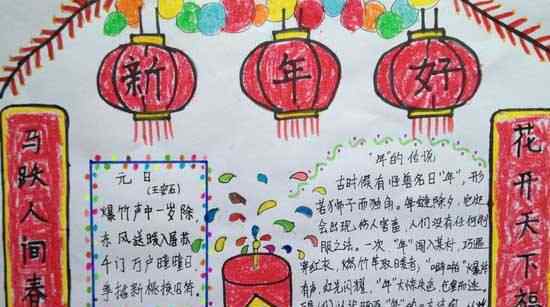 新年好
马跃人间春
花开天下福
元日
(王安石)
爆竹声中一岁除
春风送暖入屠苏
千门万户曈曈日
手把新桃换旧符
"年"的传说
古时候有怪兽名曰"年",形
若狮子而独角。每逢除夕,它就
会出现伤人害畜,人们没有任何制
服之法。一次"年"闯入某村,巧遇
穿红衣,燃竹竿取暖者;"噼啪"爆炸
有声,红光闪耀,"年"大惊失色